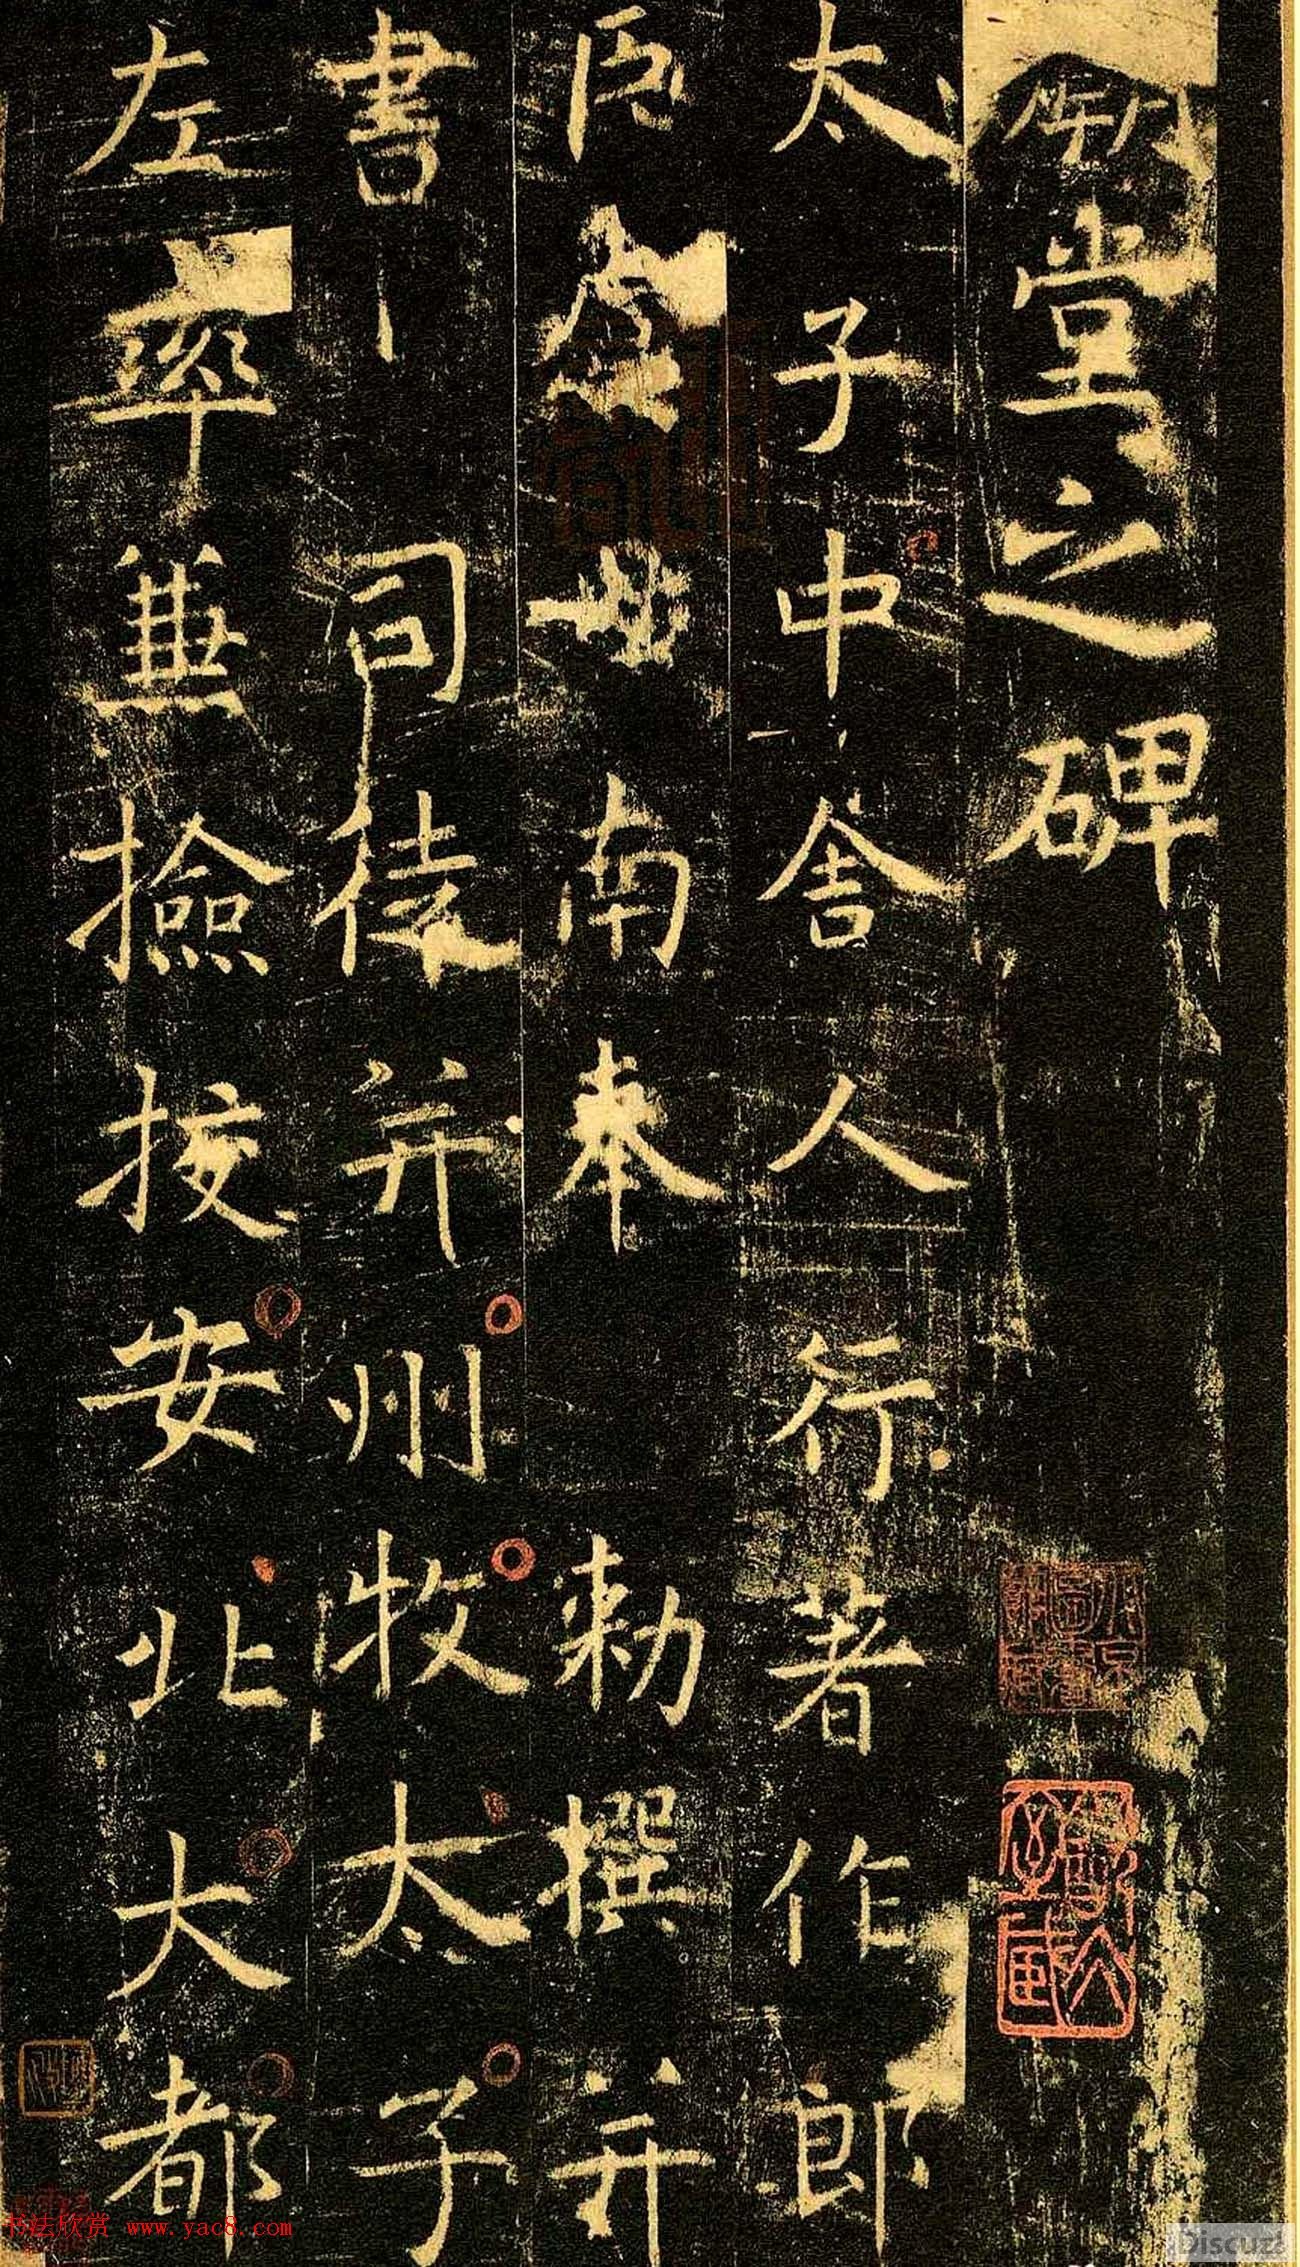 廟堂之碑
太子中舍人行著作郎
臣虞世南奉 勅撰并
書 司徒并州牧太子
左率兼撿挍安北大都
书法欣赏 www.yac8.com
Discuz